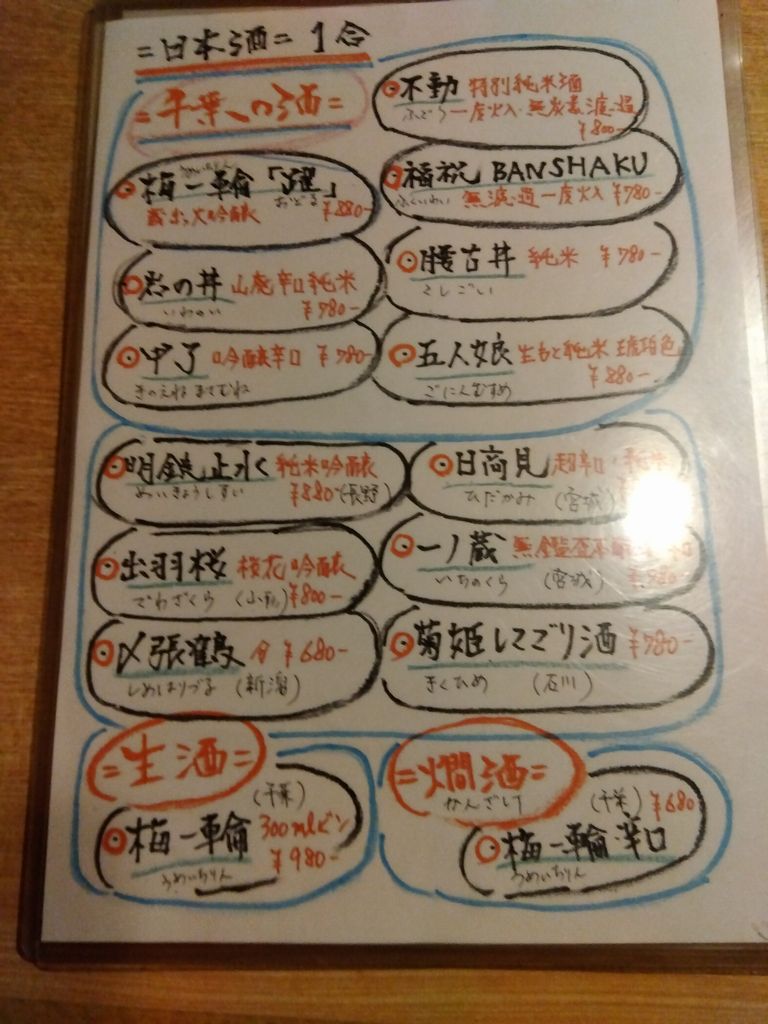 =日本酒= 1合
=千葉の酒=
不動 特別純米酒
ふどう 一度火入・無炭素濾過
¥800-
うめいちりん
梅一輪「躍」
おどる
蔵出し大吟醸 ¥880-
福祝 BANSHAKU
ふくいわい 無濾過一度火入 ¥780-
岩の井 山廃辛口純米
いわのい ¥780-
腰古井 純米 ¥780-
こしごい
甲子 吟醸辛口 ¥780-
きのえね まさむね
五人娘 生もと純米 琥珀色
ごにんむすめ ¥880-
明鏡止水 純米吟醸
めいきょうしすい ¥880-(長野)
日高見 超辛口 純米
ひだかみ (宮城)
出羽桜 桜花吟醸
でわざくら (山形) ¥800-
一ノ蔵 無鑑査
いちのくら (宮城)
〆張鶴 月 ¥680-
しめはりづる (新潟)
菊姫 にごり酒 ¥780-
きくひめ (石川)
=生酒=
(千葉)
梅一輪 300mlビン
うめいちりん ¥980-
=燗酒=
かんざけ
(千葉) ¥680
梅一輪 辛口
うめいちりん